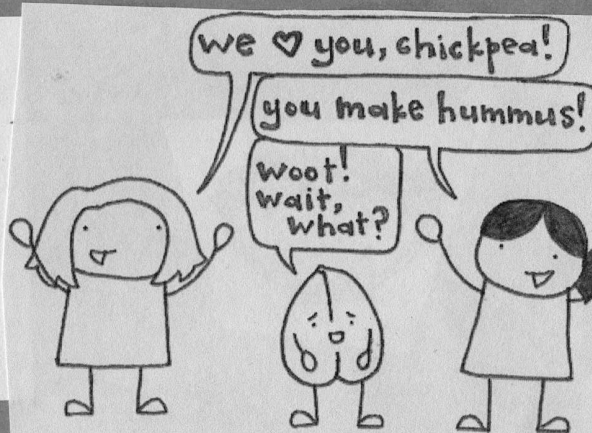 we ♡ you, chickpea!
you make hummus!
woot!
wait,
what?